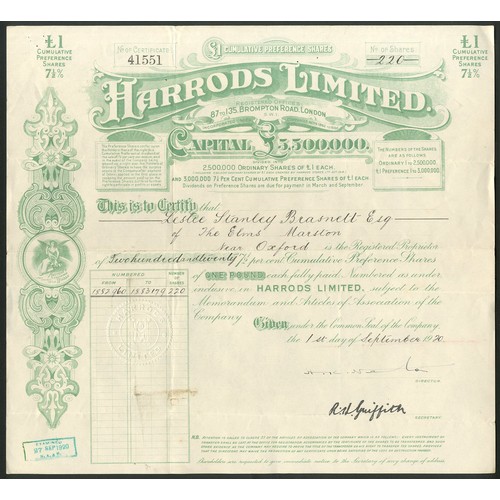 £1
CUMULATIVE
PREFERENCE
SHARES
7½%
No of Certificate
41551
£1 CUMULATIVE PREFERENCE SHARES
No of Shares
220
£1
CUMULATIVE
PREFERENCE
SHARES
7½%
HARRODS LIMITED.
REGISTERED OFFICES
87 TO 135, BROMPTON ROAD, LONDON.
CAPITAL £5,500,000.
2,500,000 ORDINARY SHARES OF £1 EACH
AND 3,000,000 7½ PER CENT CUMULATIVE PREFERENCE SHARES OF £1 EACH
Dividends on Preference Shares are due for payment in March and September
THE NUMBERS OF THE SHARES
ARE AS FOLLOWS
ORDINARY 1 TO 2,500,000
PREFERENCE 1 TO 3,000,000
This is to Certify that
Leslie Stanley Brasnett Esq
of The Elms Marston
Near Oxford is the Registered Proprietor
of Two hundred and twenty 7½ per cent Cumulative Preference Shares
of ONE POUND each, fully paid, Numbered as under
inclusive in HARRODS LIMITED, subject to the
Memorandum and Articles of Association of the
Company
NUMBERED
FROM
TO
NUMBER OF SHARES
1552960
1553179
220
Given under the Common Seal of the Company,
the 1st day of September 1920.
DIRECTOR
R. H. Griffith
SECRETARY
27 SEP 1920
Shareholders are requested to give immediate notice to the Secretary of any change of address.